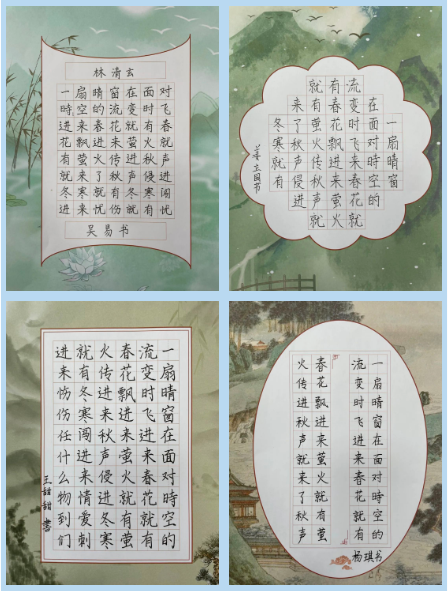 林清玄
一扇晴窗在面对
時空的流变时飞
进来春花就有春
花飘进来萤火就
有萤火传进秋声
就来了秋声侵进
冬寒就有冬寒闯
进来情爱就有忧
吴易书
一扇晴窗
在面对时空的
流变时飞来春花就
有春花飘进来萤火
就有萤火传秋声就
来了秋声侵进
冬寒就有
姜立国书
一扇晴窗在面对時空的
流变时飞进来春花就有
春花飘进来萤火就有萤
火传进来秋声侵进冬寒
就有冬寒闯进来情爱刺
进来伤伤任什么物到们
王甜甜書
一扇晴窗在面对時空的
流变时飞进来春花就有
春花飘进来萤火就有萤
火传进秋声就来了秋声
杨琪书